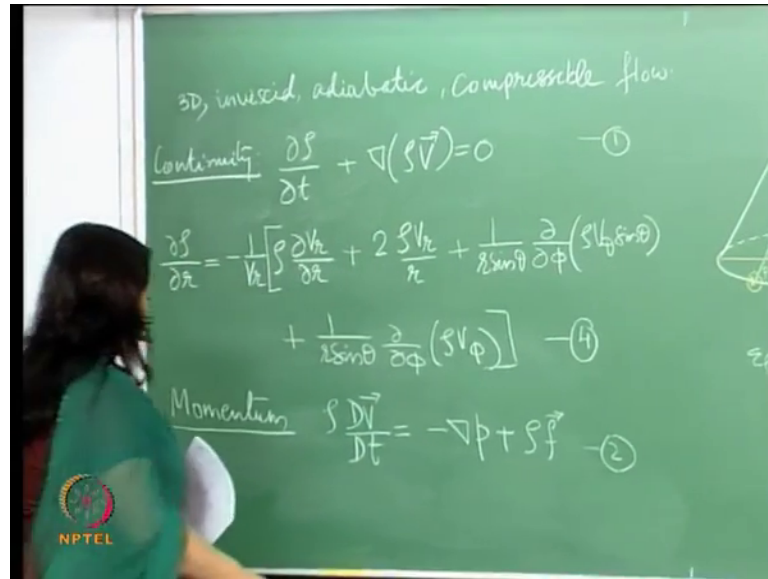 3D, inviscid, adiabatic, compressible flow.
Continuity: ∂ρ/∂t + ∇(ρV⃗) = 0 —①
∂ρ/∂r = -1/Vr [ρ ∂Vr/∂r + 2 ρVr/r + 1/(r sinθ) ∂/∂φ (ρVθ sinθ)
+ 1/(r sinθ) ∂/∂φ (ρVφ)] —④
Momentum ρ DV⃗/Dt = -∇p + ρf⃗ —②
NPTEL